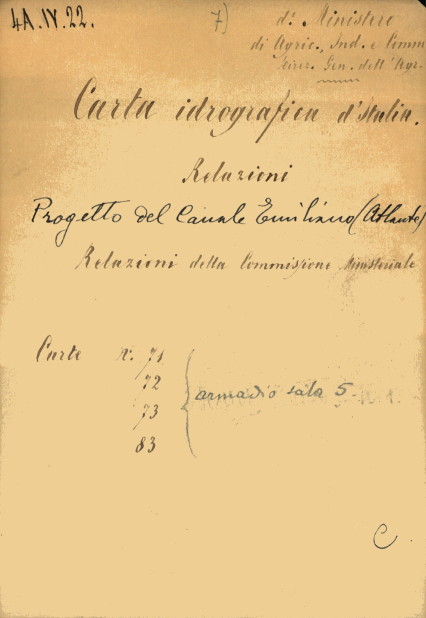 4A.IV.22.
7)
d'. Ministero
di Agric., Ind. e Comm
Direz. Gen. dell'Agr.
Carta idrografica d'Italia.
Relazioni
Progetto del Canale Emiliano (Atlante)
Relazioni della Commissione Ministeriale
Carte N. 71
72
73
83
armadio sala 5.
C.